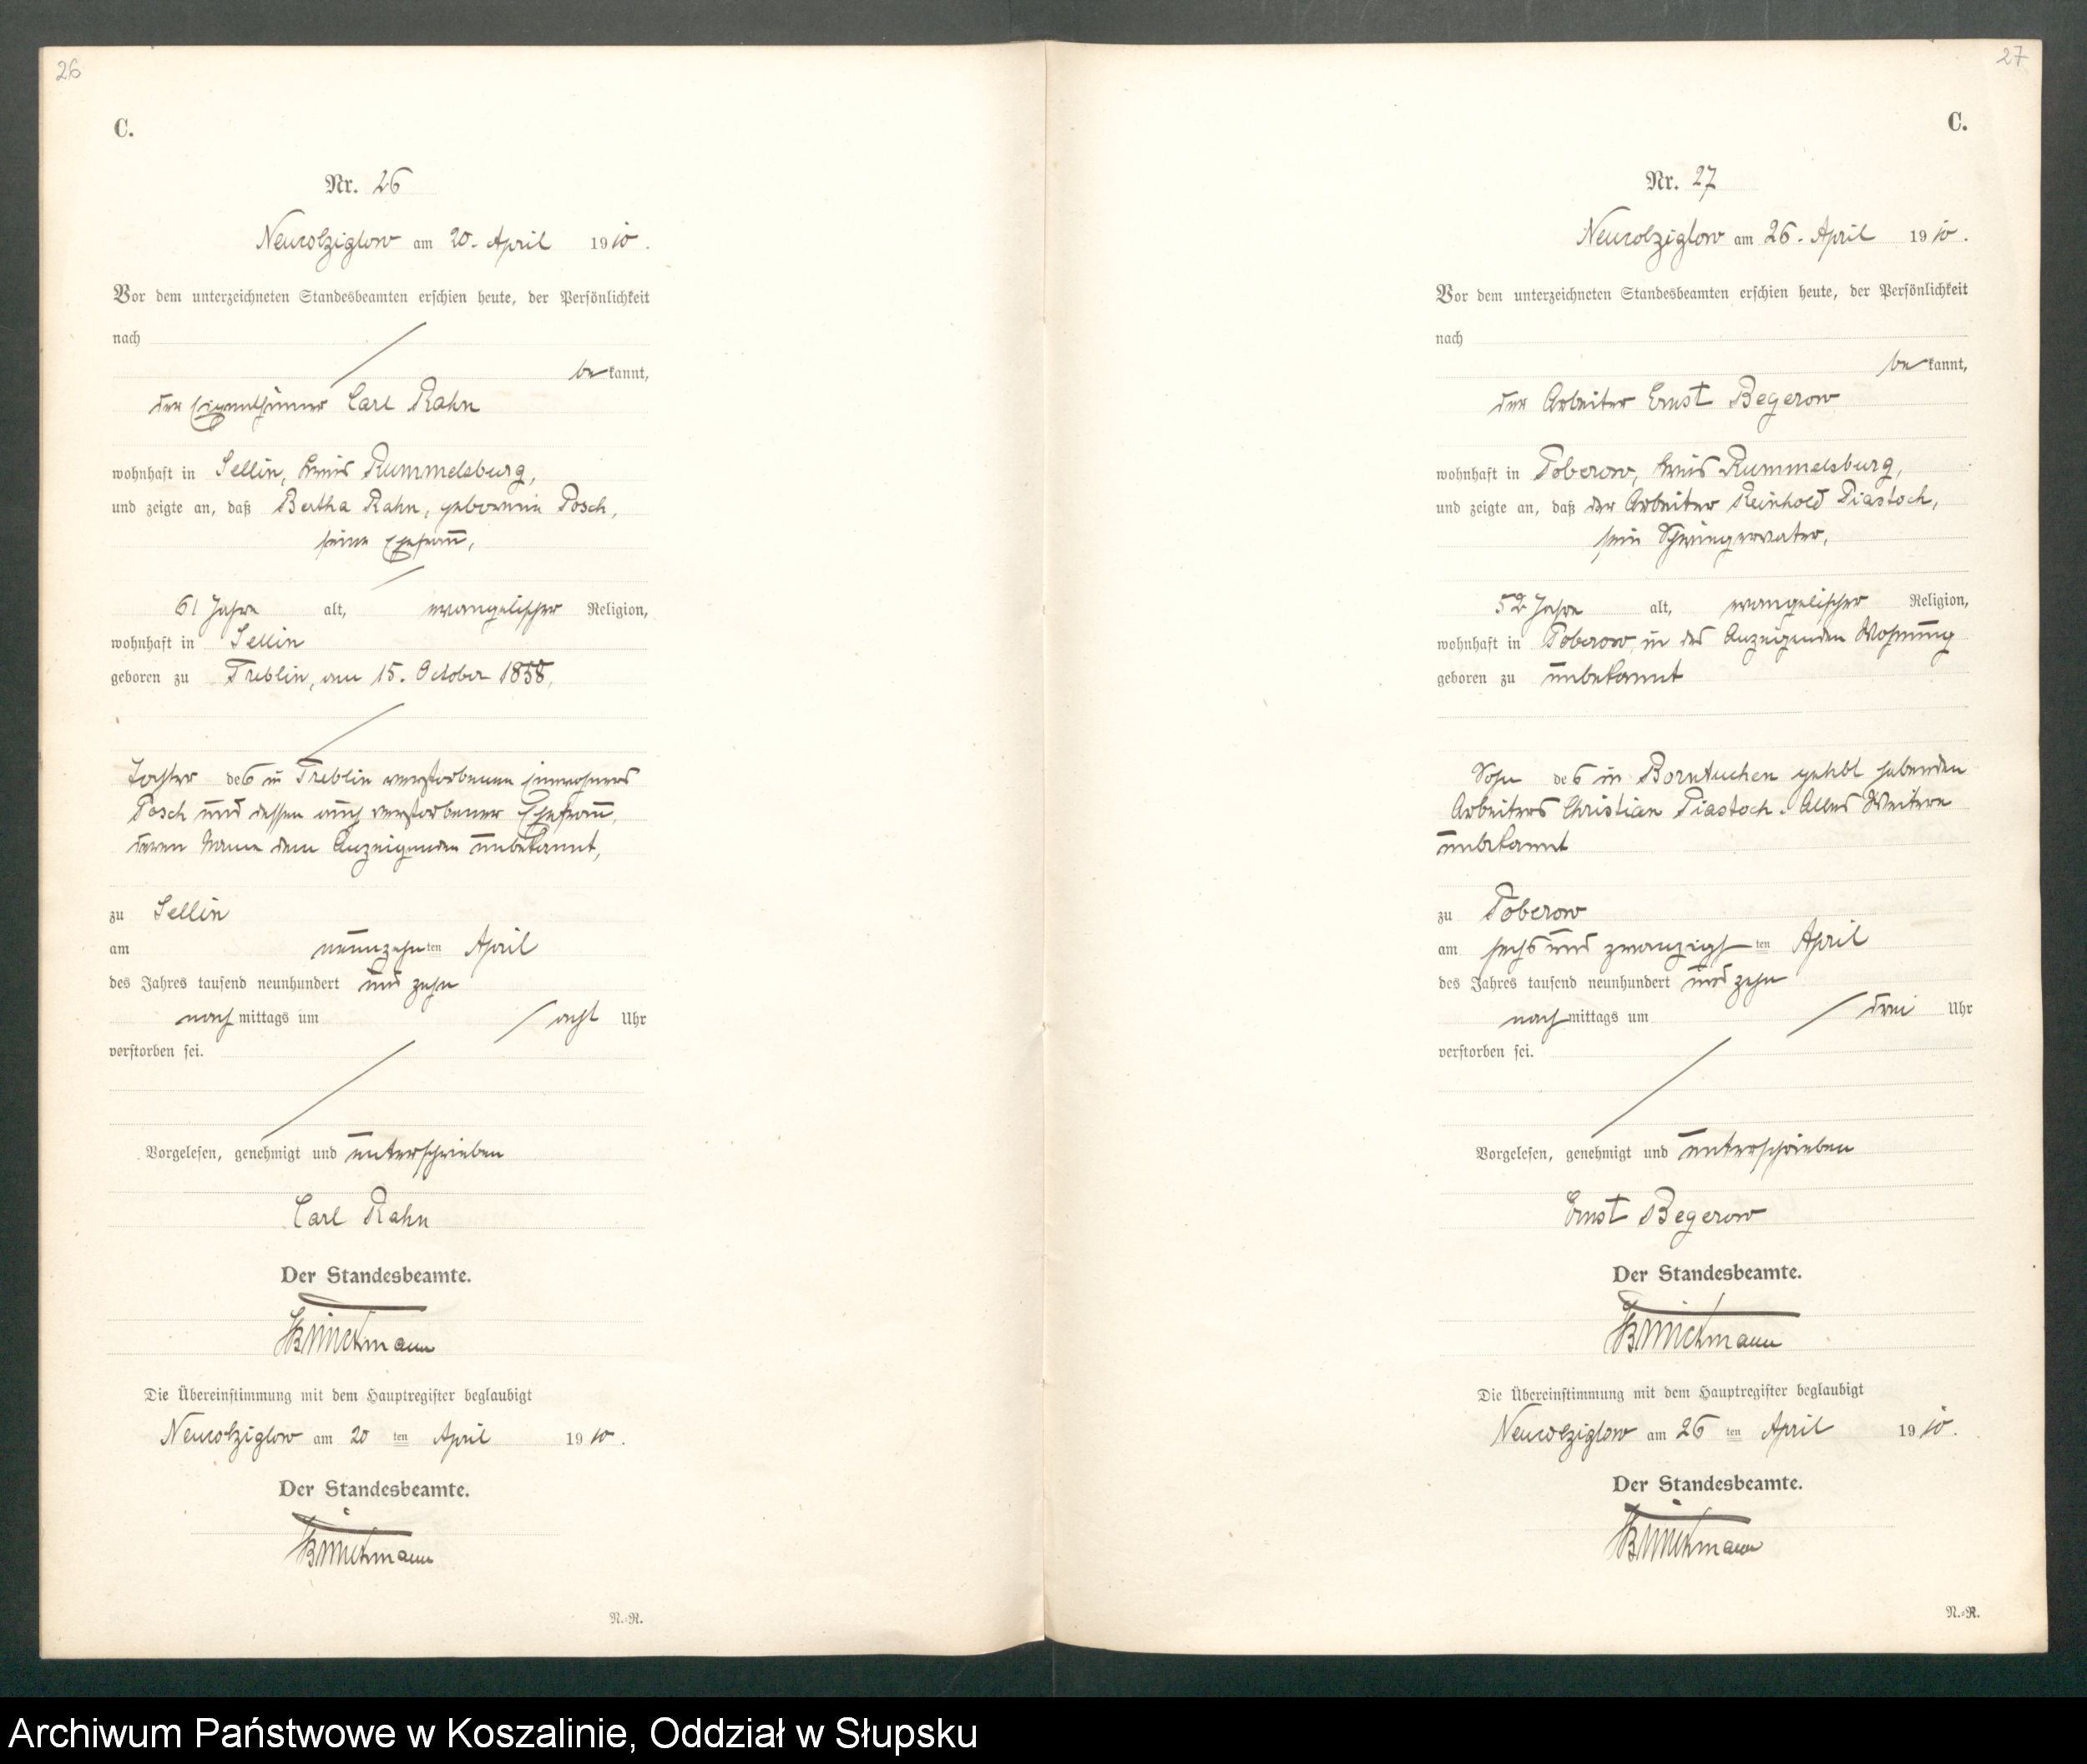 26
C.
Nr. 26
Neukolziglow am 20. April 1910.
Vor dem unterzeichneten Standesbeamten erschien heute, der Persönlichkeit
nach
bekannt,
der Eigenthümer Carl Rahn
wohnhaft in Sellin, Kreis Rummelsburg,
und zeigte an, daß Bertha Rahn, geborene Posch,
seine Ehefrau,
61 Jahre alt, evangelischer Religion,
wohnhaft in Sellin
geboren zu Treblin, am 15. October 1858,
Tochter des in Treblin verstorbenen Einwohners
Posch und dessen auch verstorbener Ehefrau,
deren Name dem Anzeigenden unbekannt,
zu Sellin
am neunzehnten April
des Jahres tausend neunhundert und zehn
nachmittags um acht Uhr
verstorben sei.
Vorgelesen, genehmigt und unterschrieben
Carl Rahn
Der Standesbeamte.
Die Übereinstimmung mit dem Hauptregister beglaubigt
Neukolziglow am 20 ten April 1910.
Der Standesbeamte.
N.-R.
27
C.
Nr. 27
Neukolziglow am 26. April 1910.
Vor dem unterzeichneten Standesbeamten erschien heute, der Persönlichkeit
nach
bekannt,
der Arbeiter Ernst Begerow
wohnhaft in Poberow, Kreis Rummelsburg,
und zeigte an, daß der Arbeiter Reinhold Piastoch,
sein Schwiegervater,
52 Jahre alt, evangelischer Religion,
wohnhaft in Poberow, in des Anzeigenden Wohnung
geboren zu unbekannt
Sohn des in Borntuchen gelebt habenden
Arbeiters Christian Piastoch. Alles Weitere
unbekannt
zu Poberow
am sechs und zwanzigsten April
des Jahres tausend neunhundert und zehn
nachmittags um drei Uhr
verstorben sei.
Vorgelesen, genehmigt und unterschrieben
Ernst Begerow
Der Standesbeamte.
Die Übereinstimmung mit dem Hauptregister beglaubigt
Neukolziglow am 26 ten April 1910.
Der Standesbeamte.
N.-R.
Archiwum Państwowe w Koszalinie, Oddział w Słupsku